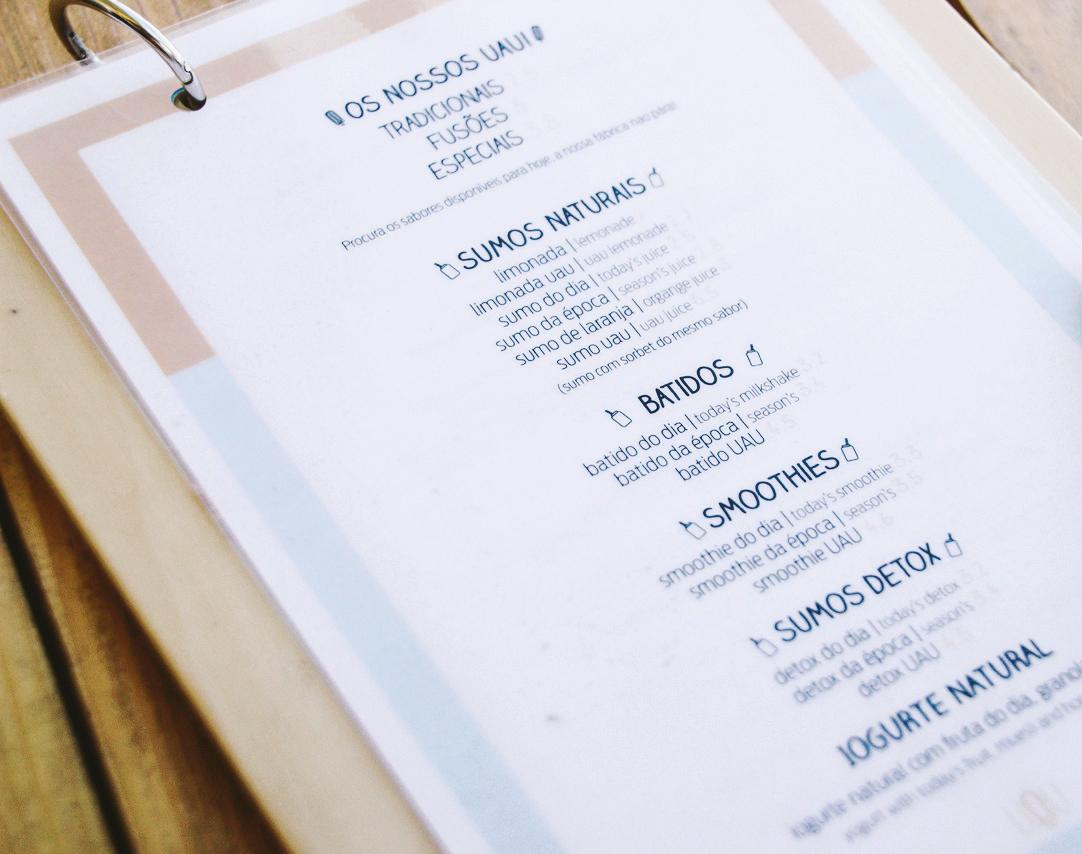 OS NOSSOS UAU!
TRADICIONAIS
FUSÕES
ESPECIAIS
Procura os sabores disponíveis para hoje, a nossa fábrica não pára!
SUMOS NATURAIS
limonada | lemonade
limonada uau | uau lemonade
sumo do dia | today's juice
sumo da época | season's juice
sumo de laranja | organge juice
sumo uau | uau juice
(sumo com sorbet do mesmo sabor)
BATIDOS
batido do dia | today's milkshake 3.2
batido da época | season's
batido UAU
SMOOTHIES
smoothie do dia | today's smoothie 3.3
smoothie da época | season's 3.5
smoothie UAU 4.6
SUMOS DETOX
detox do dia | today's detox
detox da época | season's
detox UAU
IOGURTE NATURAL
iogurte natural com fruta do dia,
yogurt with today's fruit, muesli and